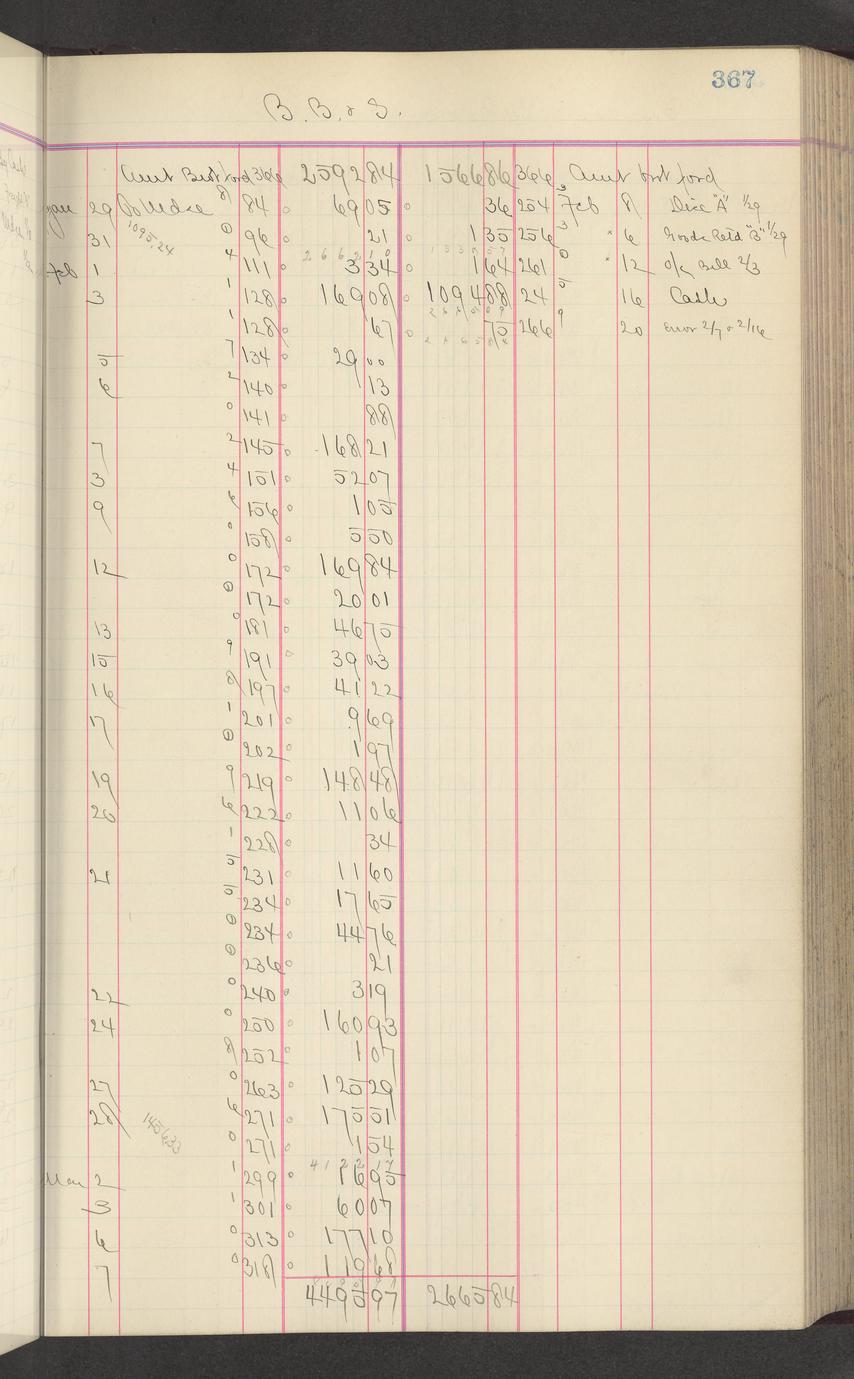 367
B. B. & S.
Amt Brot ford 366 2592 84 1566 86 366 Amt brot ford
Jan 29 To Mdse 8 84 69 05 36 254 3 Feb 8 Disc "A" 1/29
31 1095.24 0 96 21 1 35 256 3 " 6 Goods Retd "B" 1/29
26621 0 153857
Feb 1 4 111 3 34 1 64 261 0 " 12 o/c Bill 2/3
3 1 128 169 08 1094 88 24 5 16 Cash
1 128 67 75 266 9 20 Error 2/7 & 2/16
266584
5 7 134 29 00
6 2 140 13
0 141 88
7 2 145 168 21
3 4 151 52 07
9 6 156 1 05
0 158 5 50
12 0 172 169 84
0 172 20 01
13 0 181 46 75
15 9 191 39 03
16 8 197 41 22
17 1 201 9 69
0 202 1 97
19 9 219 148 48
20 6 222 11 06
1 228 34
21 5 231 11 60
5 234 17 65
0 234 44 76
0 236 21
22 0 240 3 19
24 0 250 160 93
8 252 1 07
27 0 263 125 29
28 1456.33 6 271 175 51
0 271 1 54
412217
Mar 2 1 299 16 95
3 1 301 60 07
6 0 313 177 10
7 0 318 119 68
4495 97 2665 84